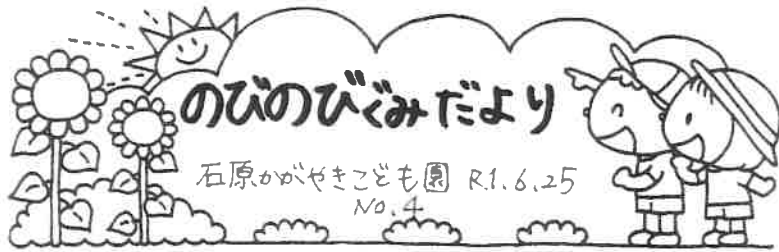 のびのびぐみだより
石原かがやきこども園 R.1.6.25
NO.4